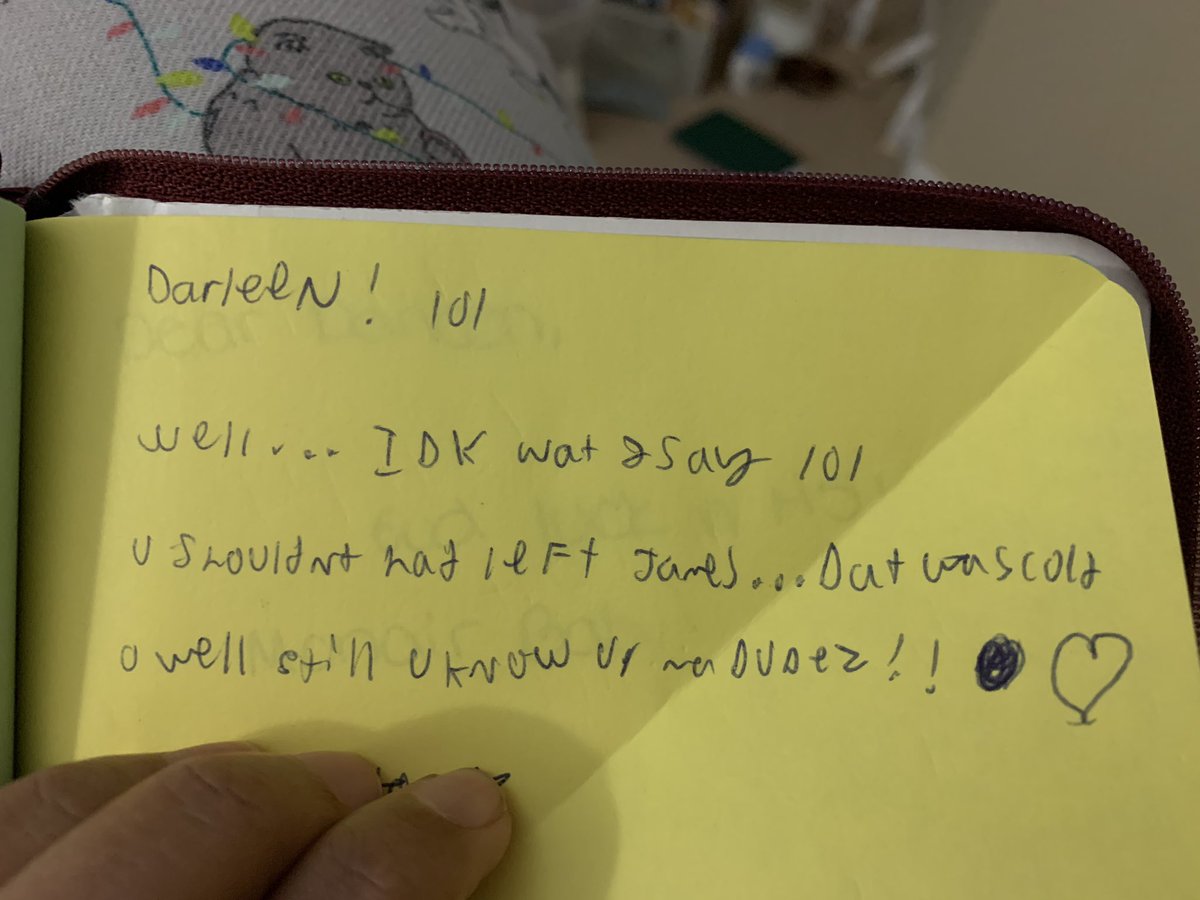 DarleeN! lol
well... IDK wat 2 say lol
U shouldnt had left James... Dat was cold
o well still U kNow Ur ma DUDez!!